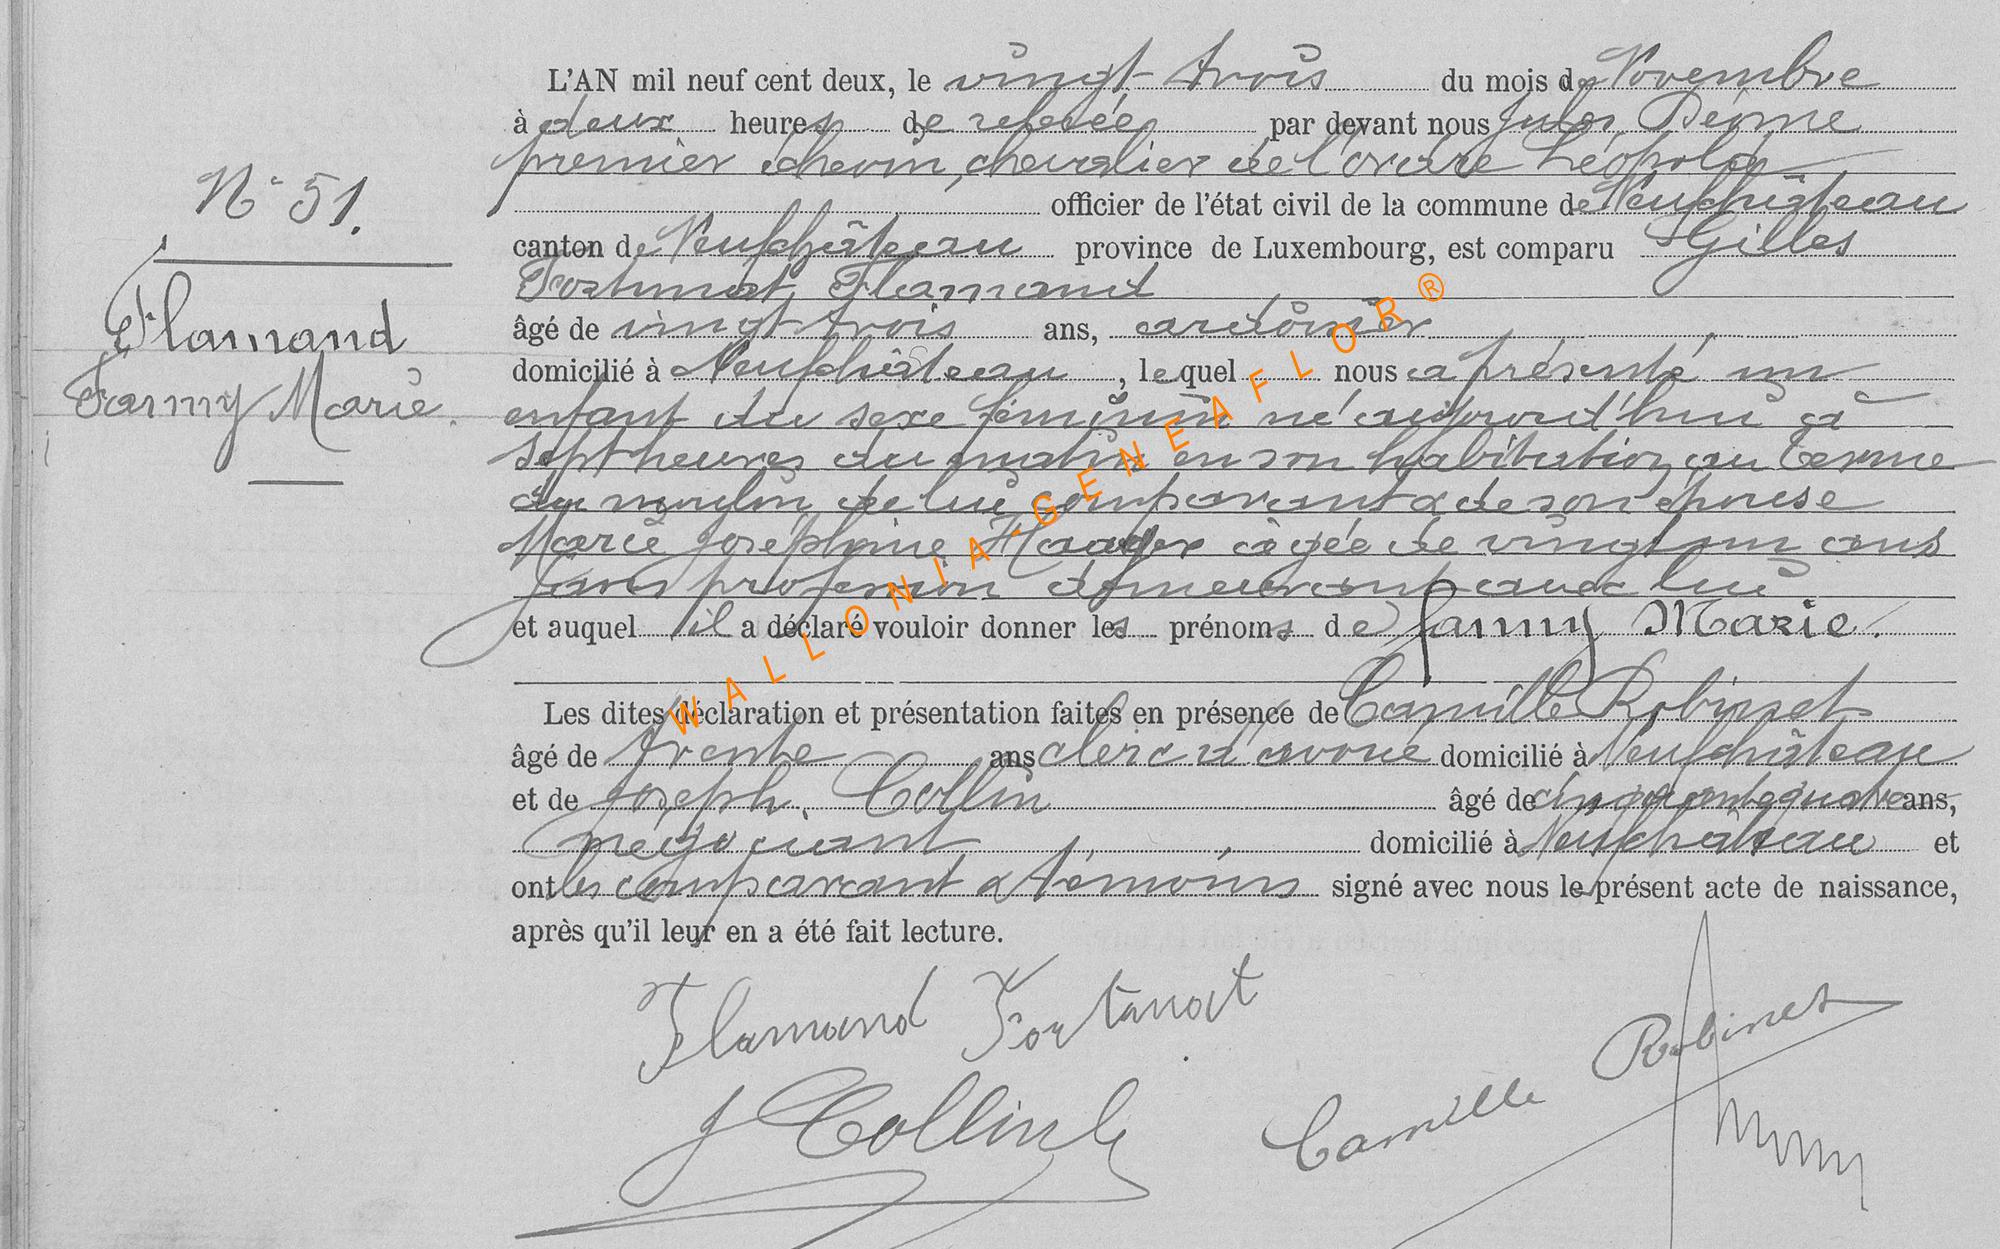 L'AN mil neuf cent deux, le vingt trois du mois de Novembre
à deux heures de relevée par devant nous Jules
premier échevin, chevalier de l'ordre Léopold
officier de l'état civil de la commune de Neufchâteau
N° 51.
canton de Neufchâteau province de Luxembourg, est comparu Gilles
Fortunat Flamand
Flamand
Fanny Marie.
âgé de vingt trois ans, ardoisier
domicilié à Neufchâteau, lequel nous a présenté un
enfant du sexe féminin né aujourd'hui à
sept heures du matin en son habitation au terme
du moulin de lui comparant & de son épouse
Marie Joséphine âgée de vingt un ans
sans profession demeurant avec lui
et auquel il a déclaré vouloir donner les prénoms de Fanny Marie.
Les dites déclaration et présentation faites en présence de Camille Robinet
âgé de trente ans clerc d'avoué domicilié à Neufchâteau
et de Joseph Collin âgé de cinquante quatre ans,
négociant domicilié à Neufchâteau et
ont les comparant & témoins signé avec nous le présent acte de naissance,
après qu'il leur en a été fait lecture.
Flamand Fortunat
J Collin
Camille Robinet
WALLONIA-GENEAFLOR ®